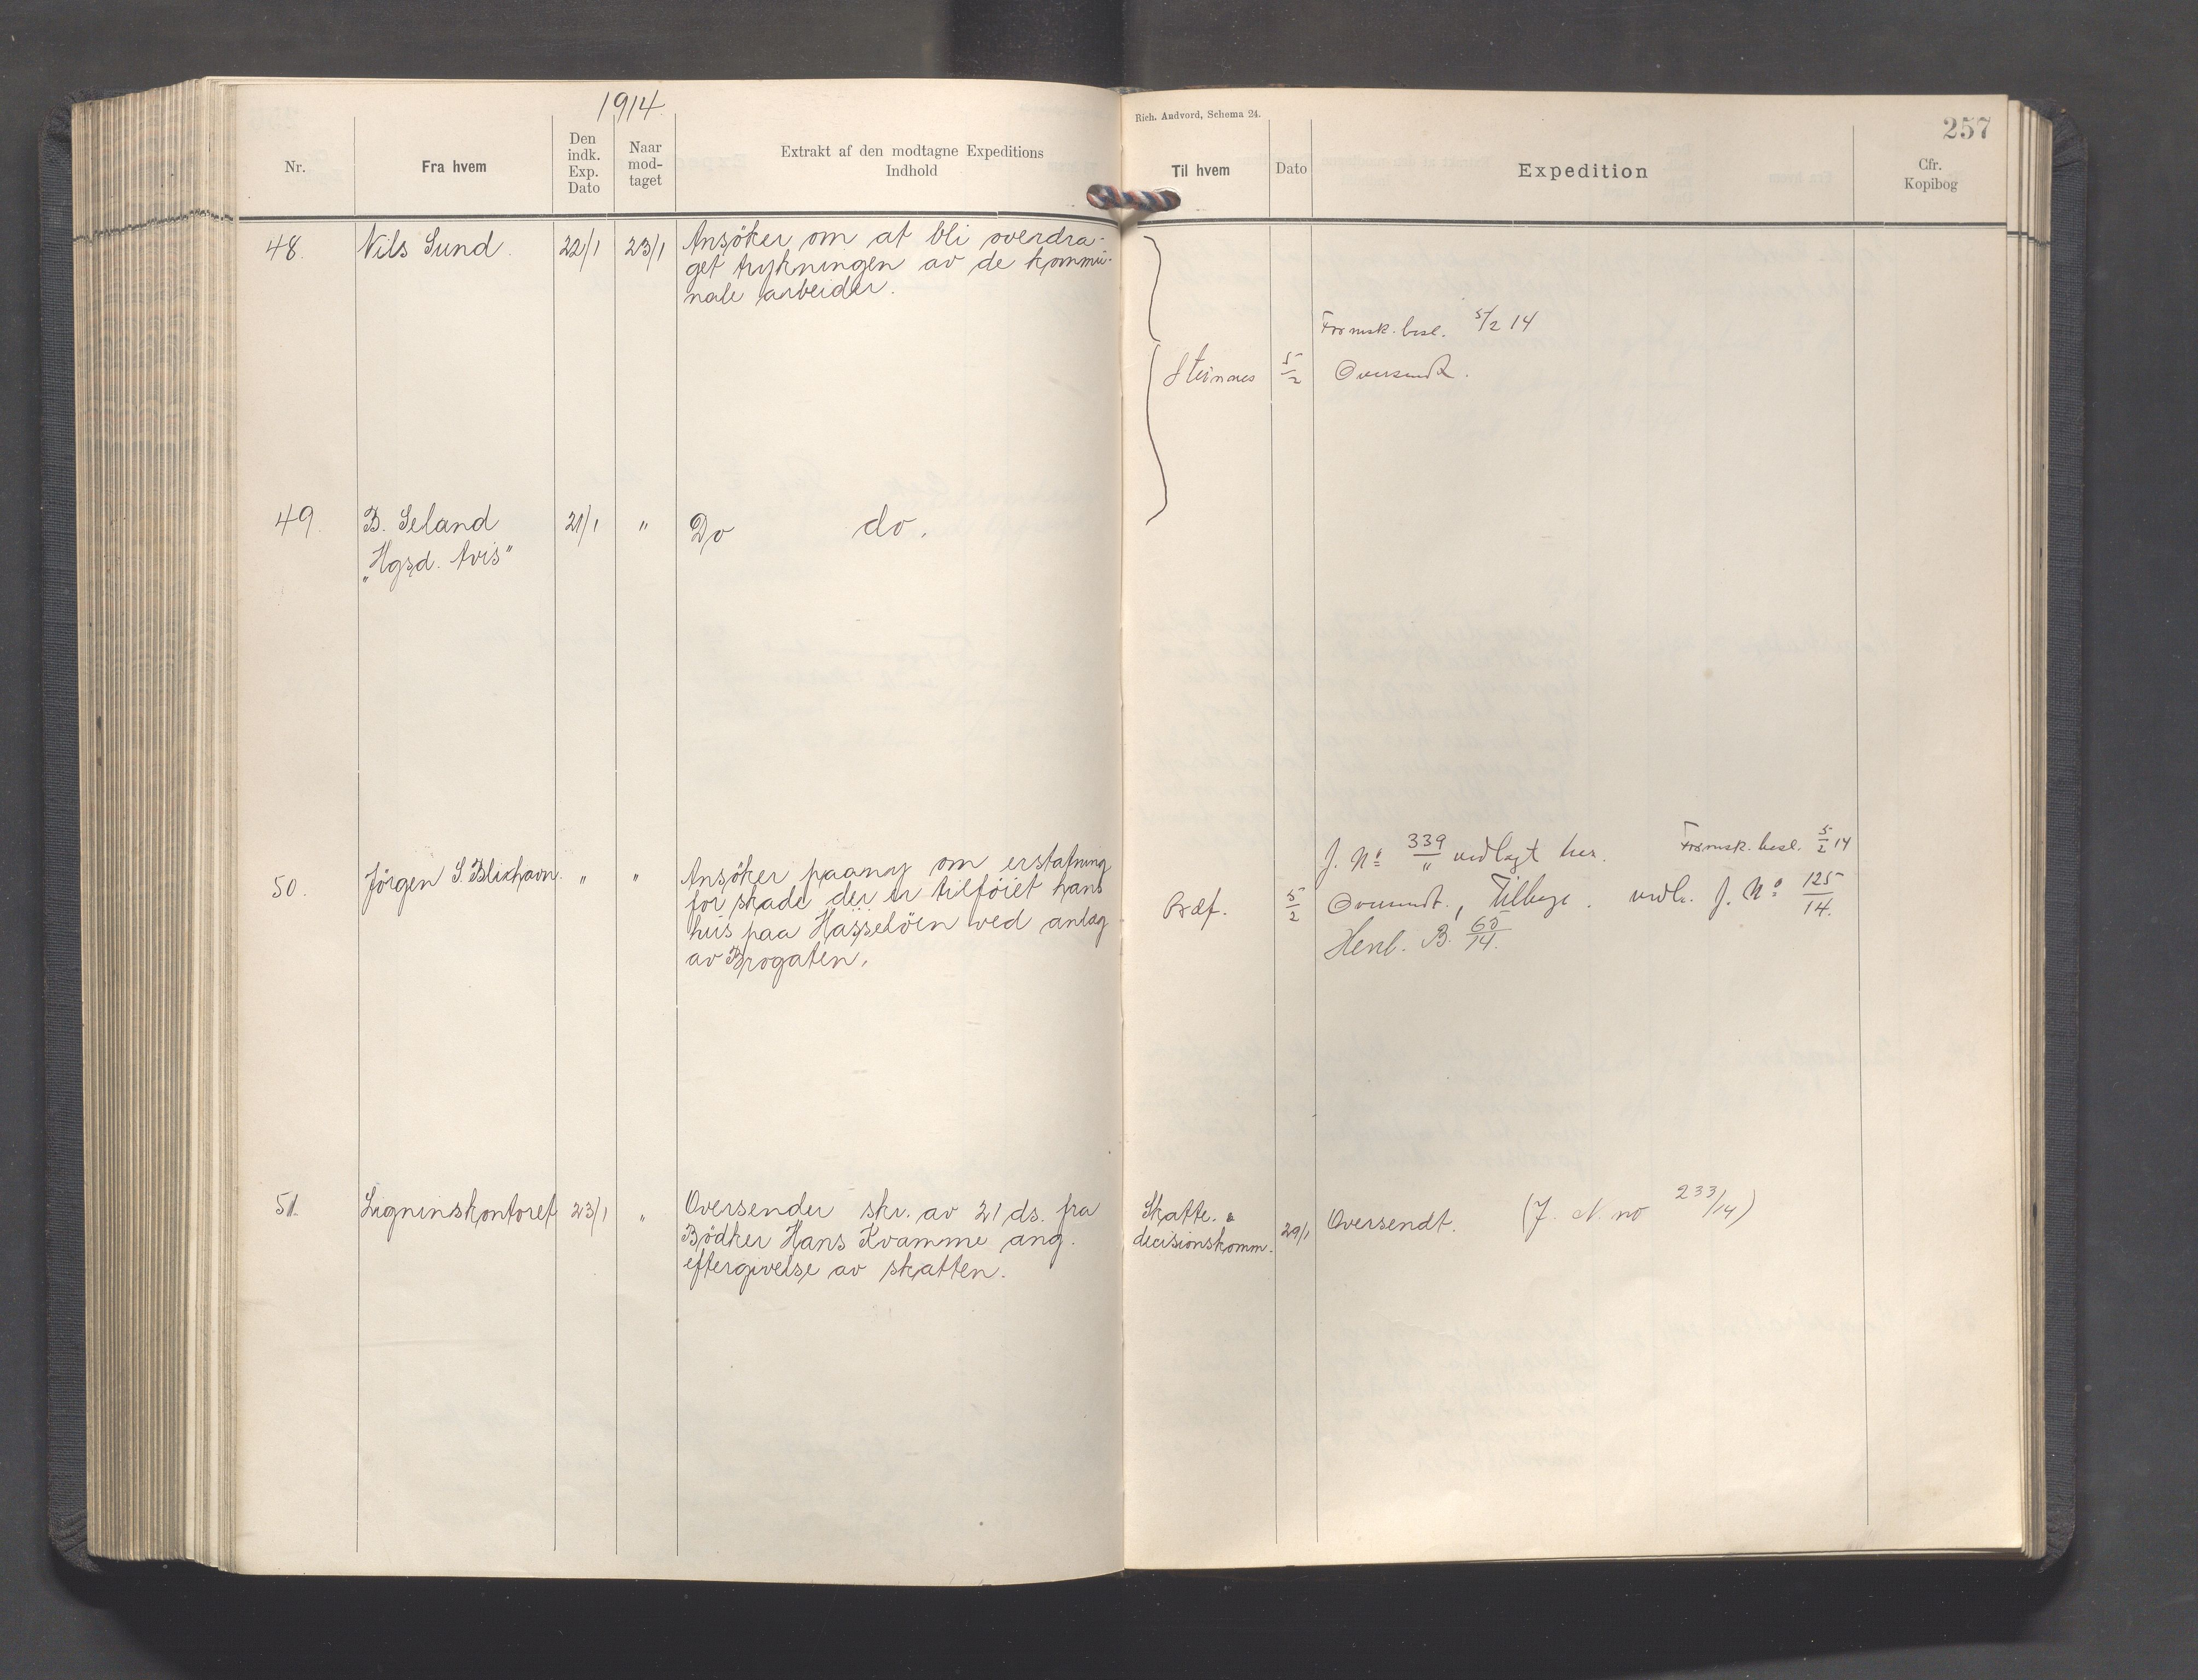 1914.
Rich. Andvord, Schema 24.
257
Nr.
Fra hvem
Den indk. Exp. Dato
Naar mod-taget
Extrakt af den modtagne Expeditions Indhold
Til hvem
Dato
Expedition
Cfr. Kopibog
48. Nils Sund. 22/1 23/1 Ansöker om at bli overdra-
get trykningen av de kommu-
nale arbeider.
Formsk. besl. 5/2 14
Steinnes 5/2 Oversendt.
49. B. Seland 21/1 " Do do.
"Hgsd. Avis"
50. Jörgen S. Blikhavn. " " Ansöker paany om erstatning
for skade der er tilföiet hans
hus paa Hasselöen ved anlæg
av Brogaten.
J. No 339/" vedlagt her. Formsk. besl. 5/2 14
5/2 Oversendt., Tilbage. vedl. J. No 125/14.
Henl. B. 65/14.
51. Ligninskontoret 23/1 " Oversender skr. av 21 ds. fra
Bödker Hans Kvamme ang.
eftergivelse av skatten.
Skatte.
decisionskomm. 29/1 Oversendt. (J. N. no 233/14)